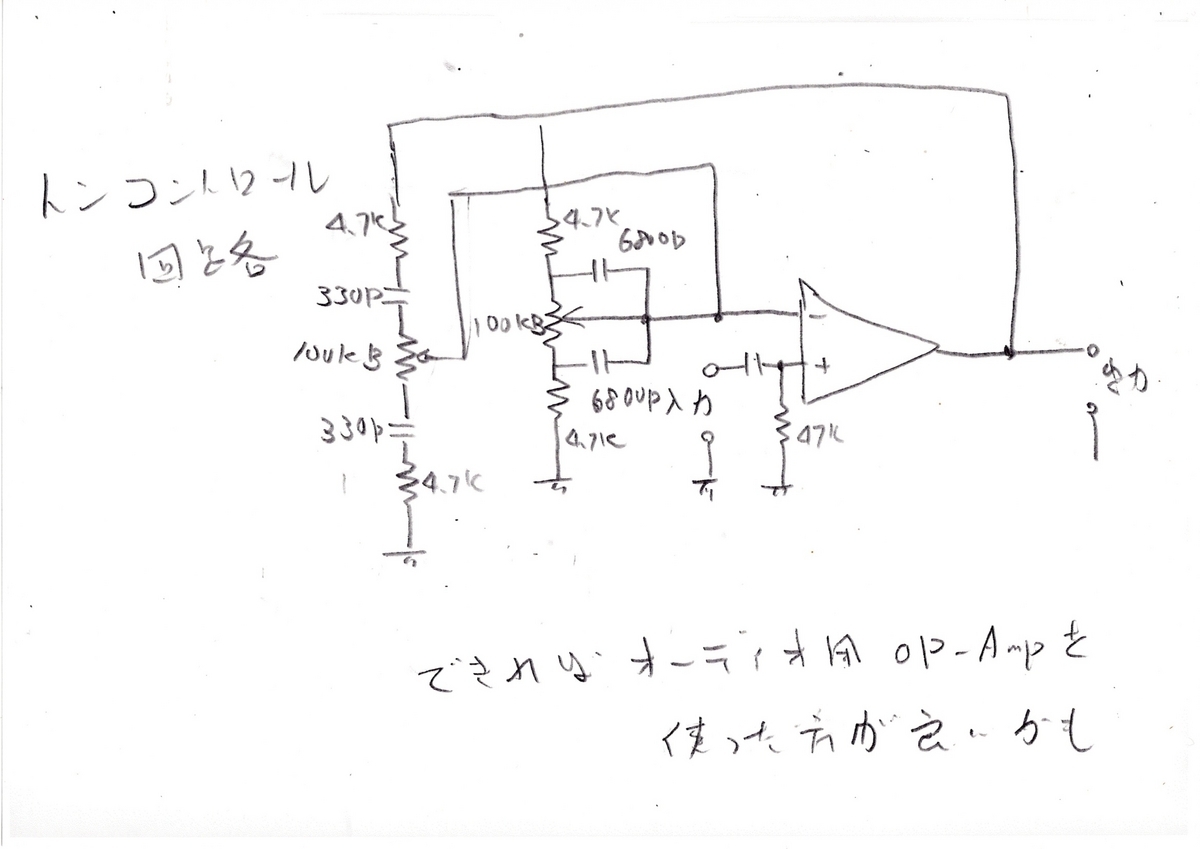 トンコントロール
回路
4.7K
4.7K
6800p
330P
100KB
100KB
-
+
出力
6800P
入力
330p
4.7K
47K
4.7K
できれば オーディオ用 OP-Ampを
使った方が良いかも